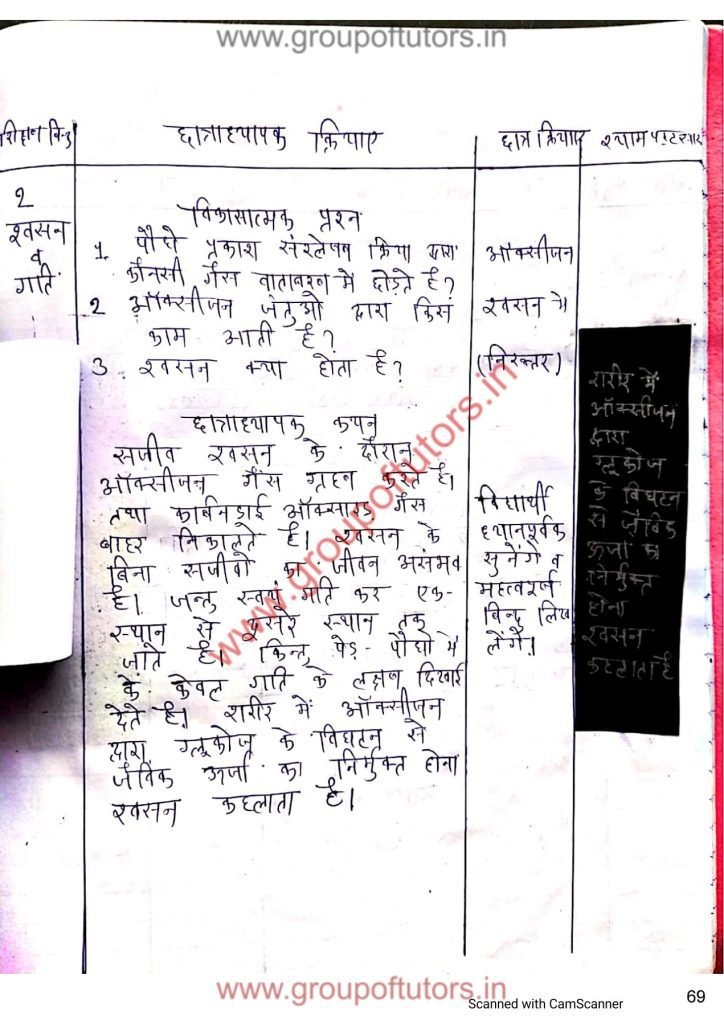 www.groupoftutors.in
शिक्षण बिन्दु
छात्राध्यापक क्रियाए
छात्र क्रियाए
श्याम पट्ट सार
2
श्वसन
व
गति
विकासात्मक प्रश्न
1. पौधे प्रकाश संश्लेषण क्रिया द्वारा
कौनसी गैस वातावरण मे छोड़ते है?
ऑक्सीजन
2 ऑक्सीजन जंतुओ द्वारा किस
काम आती है?
श्वसन मे
3. श्वसन क्या होता है?
(निरुत्तर)
छात्राध्यापक कथन
सजीव श्वसन के दौरान
ऑक्सीजन गैस ग्रहण करते है।
तथा कार्बनडाई ऑक्साइड गैस
बाहर निकालते है। श्वसन के
बिना सजीवो का जीवन असंभव
है। जन्तु स्वयं गति कर एक-
स्थान से दूसरे स्थान तक
जाते है। किन्तु पेड़-पौधो मे
के केवल गति के लक्षण दिखाई
देते है। शरीर में ऑक्सीजन
द्वारा ग्लूकोज के विघटन से
जैविक ऊर्जा का निर्मुक्त होना
श्वसन कहलाता है।
विद्यार्थी
ध्यानपूर्वक
सुनेंगे व
महत्वपूर्ण
बिन्दु लिख
लेंगे।
शरीर में
ऑक्सीजन
द्वारा
ग्लूकोज
के विघटन
से जैविक
ऊर्जा का
निर्मुक्त
होना
श्वसन
कहलाता है
www.groupoftutors.in
www.groupoftutors.in
Scanned with CamScanner
69